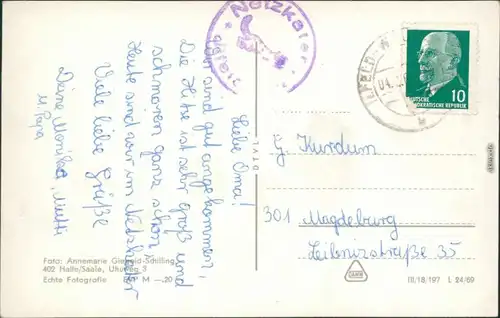 Liebe Oma!
Wir sind gut angekommen,
Die Hitze ist sehr groß und
schmoren ganz schön,
Heute sind wir im Netzkater
Viele liebe Grüße
Deine Monika, Mutti
u. Papa
Netzkater
G. Kurdum
301 Magdeburg
Leibnizstraße 35
DEUTSCHE
DEMOKRATISCHE REPUBLIK
10
Foto: Annemarie
402 Halle/Saale, Uhuweg 3
Echte Fotografie M —.20
III/18/197 L 24/69